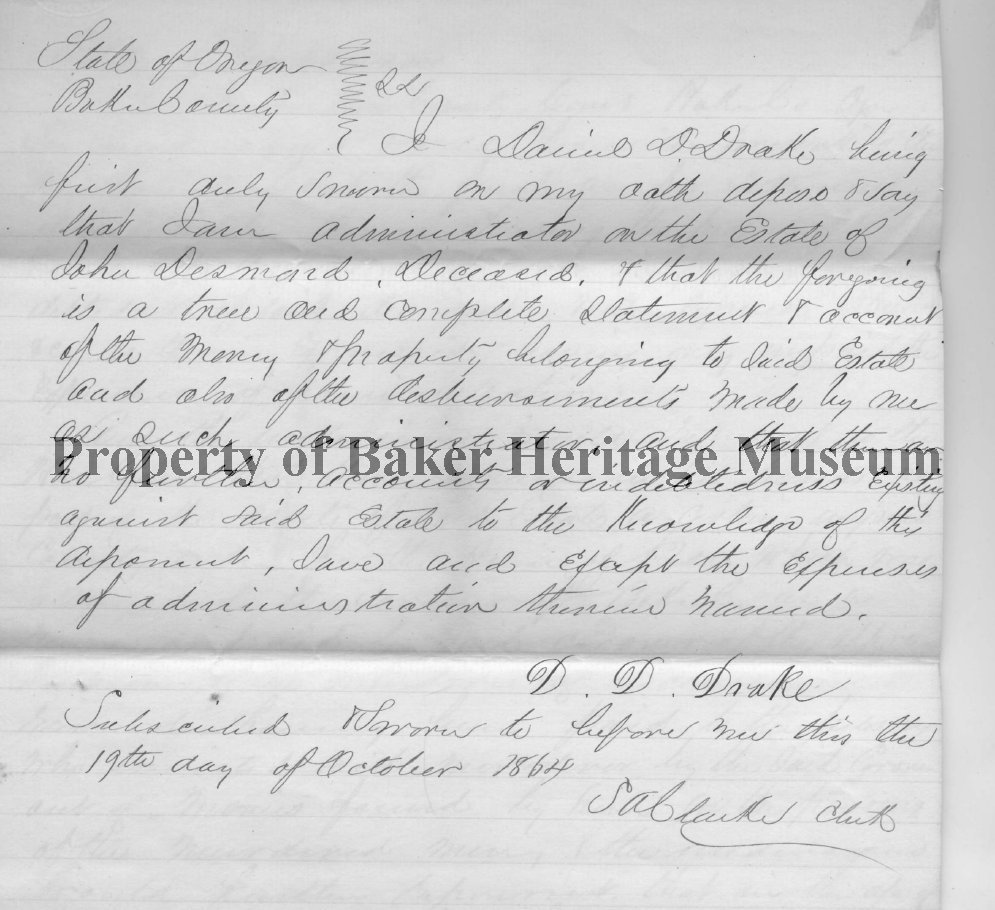 State of Oregon
Baker County } SS
I Daniel D. Drake being
first duly Sworn on my oath depose & say
that I am administrator on the Estate of
John Desmond, Deceased, & that the foregoing
is a true and complete statement & account
of the Money & Property belonging to said Estate
and also of the disbursements made by me
as such administrator, and that there are
Property of Baker Heritage Museum
no further accounts or indebtedness Existing
against said Estate to the Knowledge of this
deponent, Save and Except the Expenses
of administration therein named.
D. D. Drake
Subscribed & Sworn to before me this the
19th day of October 1864
S A Clarke Clerk